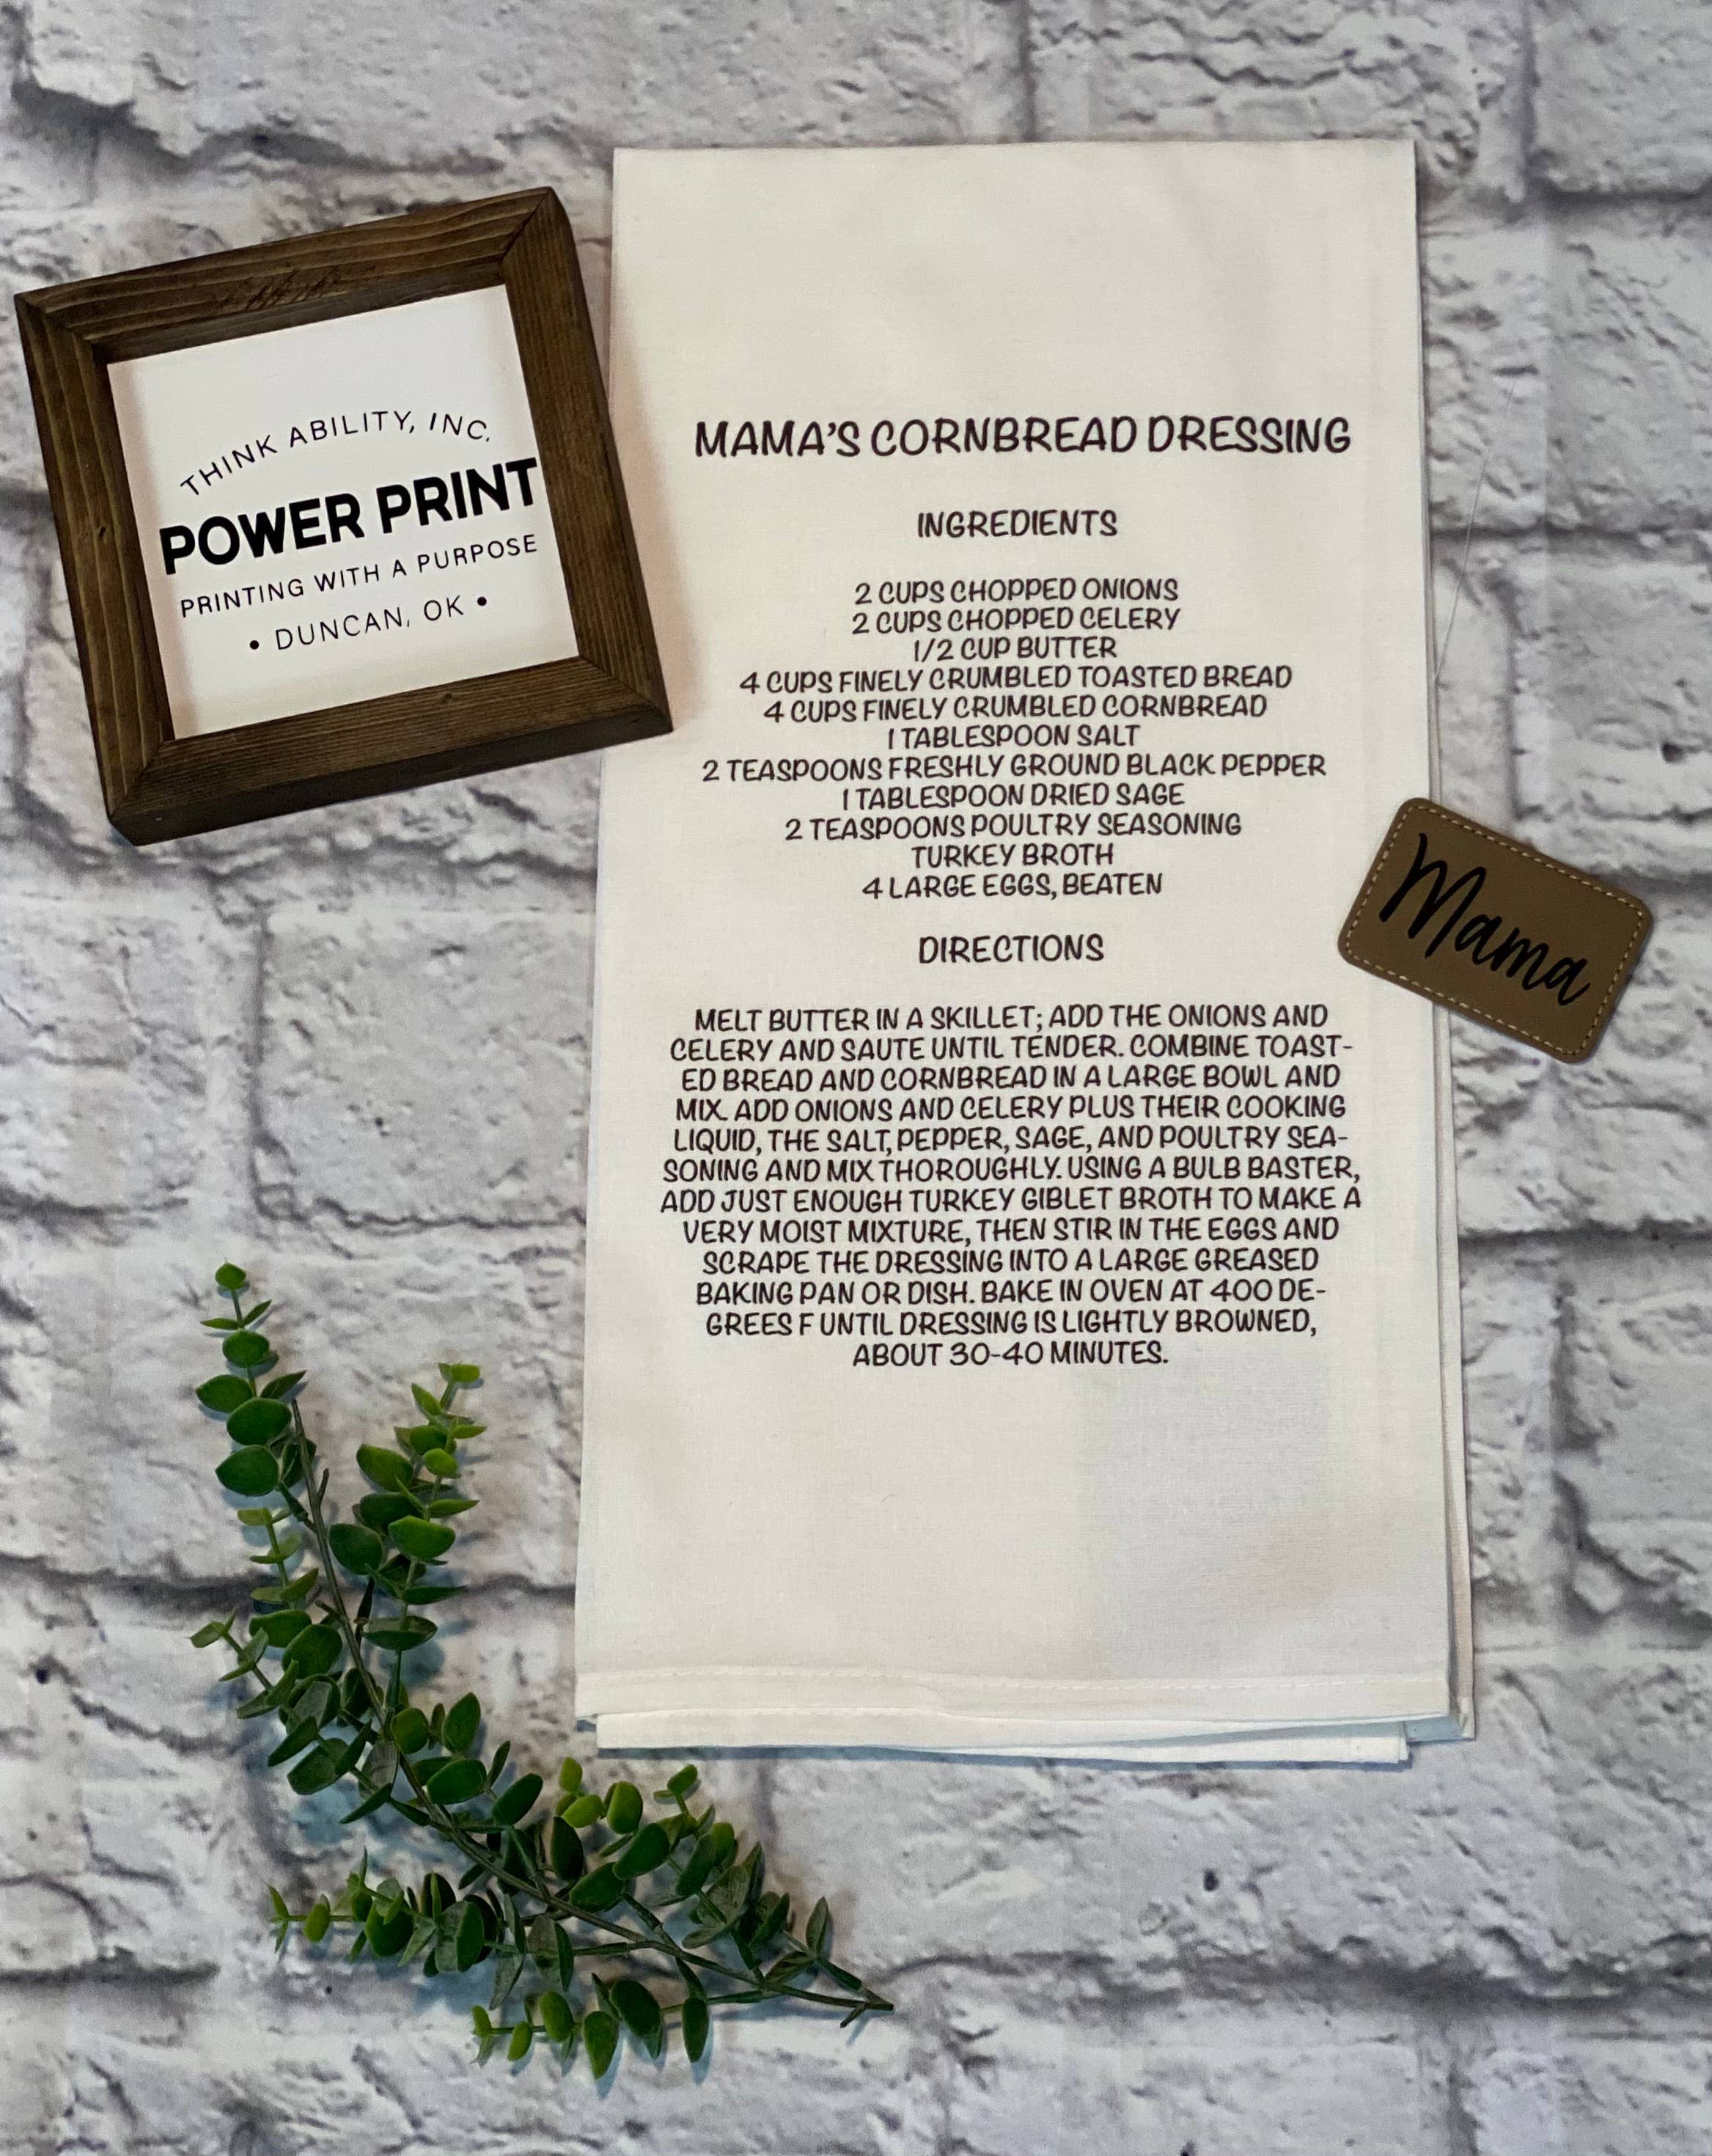 THINK ABILITY, INC.
POWER PRINT
PRINTING WITH A PURPOSE
• DUNCAN, OK •
MAMA'S CORNBREAD DRESSING
INGREDIENTS
2 CUPS CHOPPED ONIONS
2 CUPS CHOPPED CELERY
1/2 CUP BUTTER
4 CUPS FINELY CRUMBLED TOASTED BREAD
4 CUPS FINELY CRUMBLED CORNBREAD
1 TABLESPOON SALT
2 TEASPOONS FRESHLY GROUND BLACK PEPPER
1 TABLESPOON DRIED SAGE
2 TEASPOONS POULTRY SEASONING
TURKEY BROTH
4 LARGE EGGS, BEATEN
DIRECTIONS
MELT BUTTER IN A SKILLET; ADD THE ONIONS AND
CELERY AND SAUTE UNTIL TENDER. COMBINE TOAST-
ED BREAD AND CORNBREAD IN A LARGE BOWL AND
MIX. ADD ONIONS AND CELERY PLUS THEIR COOKING
LIQUID, THE SALT, PEPPER, SAGE, AND POULTRY SEA-
SONING AND MIX THOROUGHLY. USING A BULB BASTER,
ADD JUST ENOUGH TURKEY GIBLET BROTH TO MAKE A
VERY MOIST MIXTURE, THEN STIR IN THE EGGS AND
SCRAPE THE DRESSING INTO A LARGE GREASED
BAKING PAN OR DISH. BAKE IN OVEN AT 400 DE-
GREES F UNTIL DRESSING IS LIGHTLY BROWNED,
ABOUT 30-40 MINUTES.
Mama